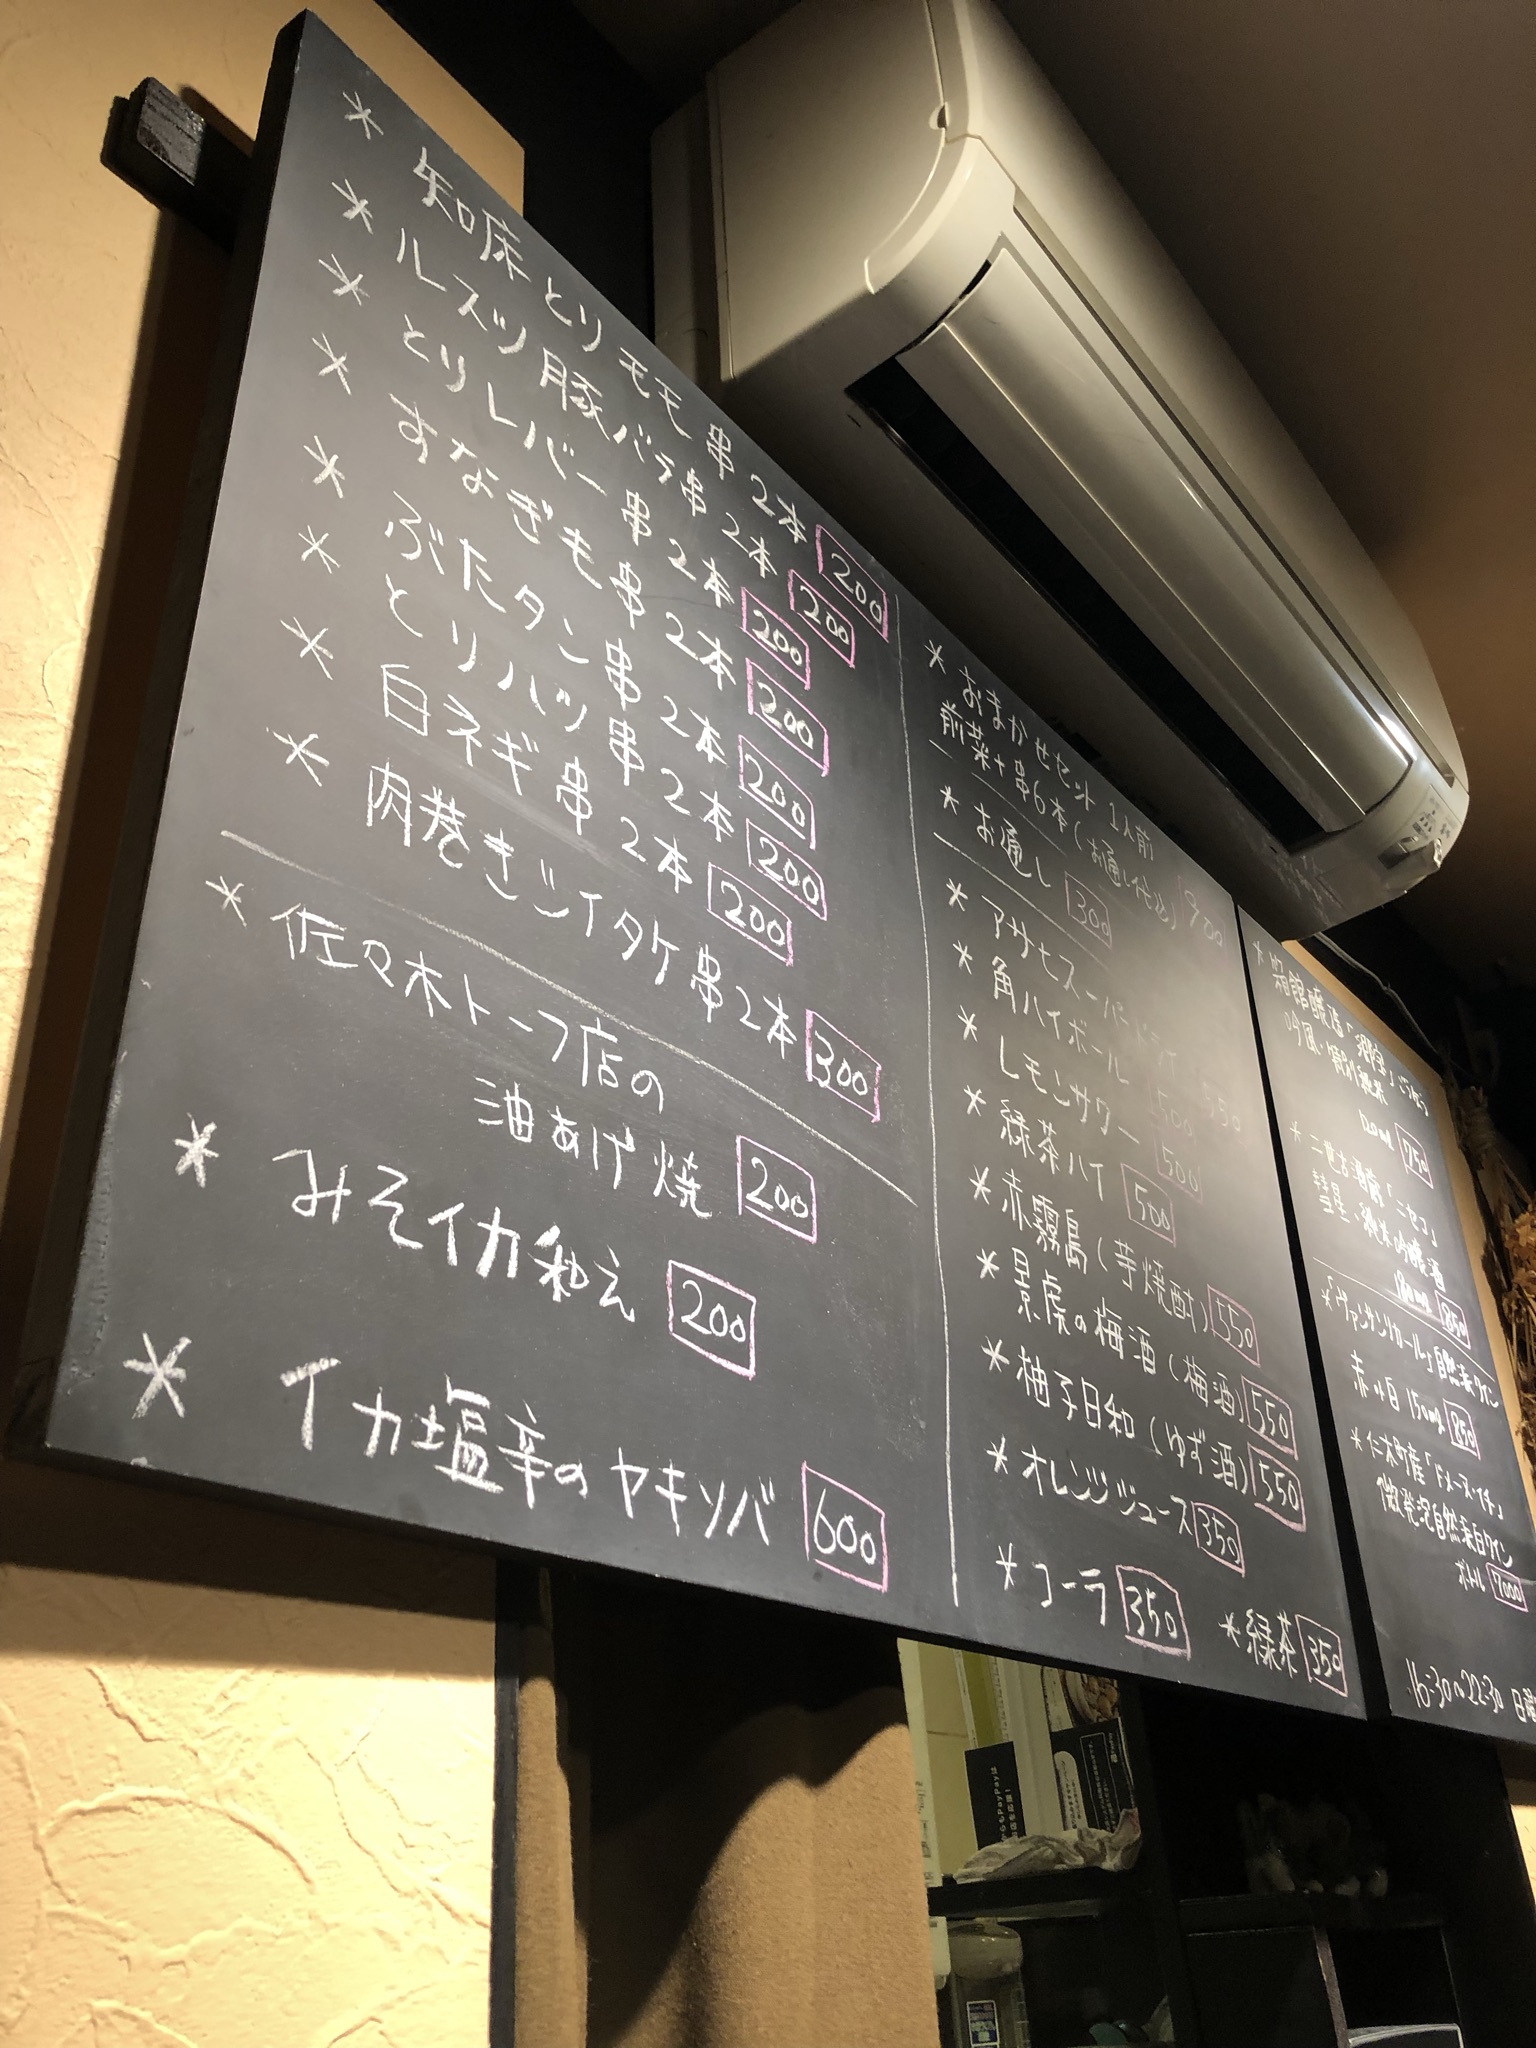 * 知床とりモモ串2本 200
* ルスツ豚バラ串2本 200
* とりレバー串2本 200
* すなぎも串2本 200
* ぶたタン串2本 200
* とりハツ串2本 200
* 白ネギ串2本 200
* 肉巻きシイタケ串2本 300
* 佐々木トーフ店の
油あげ焼 200
* みそイカ和え 200
* イカ塩辛のヤキソバ 600
* おまかせセット1人前
前菜+串6本(お通し代込) 900
* お通し 300
* アサヒスーパードライ 550
* 角ハイボール 500
* レモンサワー 500
* 緑茶ハイ 500
* 赤霧島(芋焼酎) 550
* 景虎の梅酒(梅酒) 550
* 柚子日和(ゆず酒) 550
* オレンジジュース 350
* コーラ 350 * 緑茶 350
* 箱館醸造「郷宝」ごっほう
吟風・特別純米
120ml 750
* 二世古酒蔵「ニセコ」
彗星・純米吟醸酒
180ml 850
自然派ワイン
赤 or 白 150ml 850
* 仁木町産「ドメーヌ・イチ」
微発泡自然派白ワイン
ボトル 7000
16:30~22:30
PayPayは